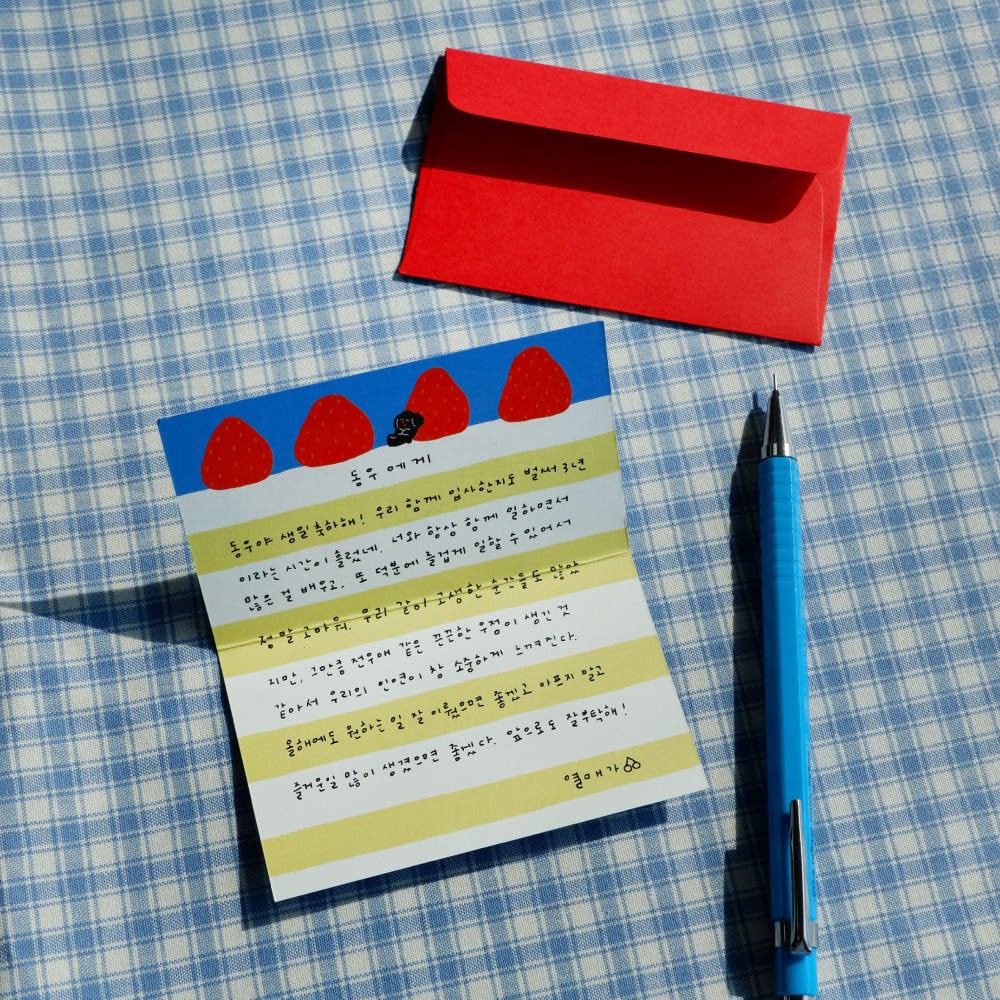 동우에게
동우야 생일축하해! 우리 함께 입사한지도 벌써 3년
이라는 시간이 흘렀네. 너와 항상 함께 일하면서
많은 걸 배우고, 또 덕분에 즐겁게 일할 수 있어서
정말 고마워. 우리 같이 고생한 순간들도 많았
지만, 그만큼 전우애 같은 끈끈한 우정이 생긴 것
같아서 우리의 인연이 참 소중하게 느껴진다.
올해에도 원하는 일 잘 이뤘으면 좋겠고 아프지 말고
즐거운일 많이 생겼으면 좋겠다. 앞으로도 잘부탁해!
열매가